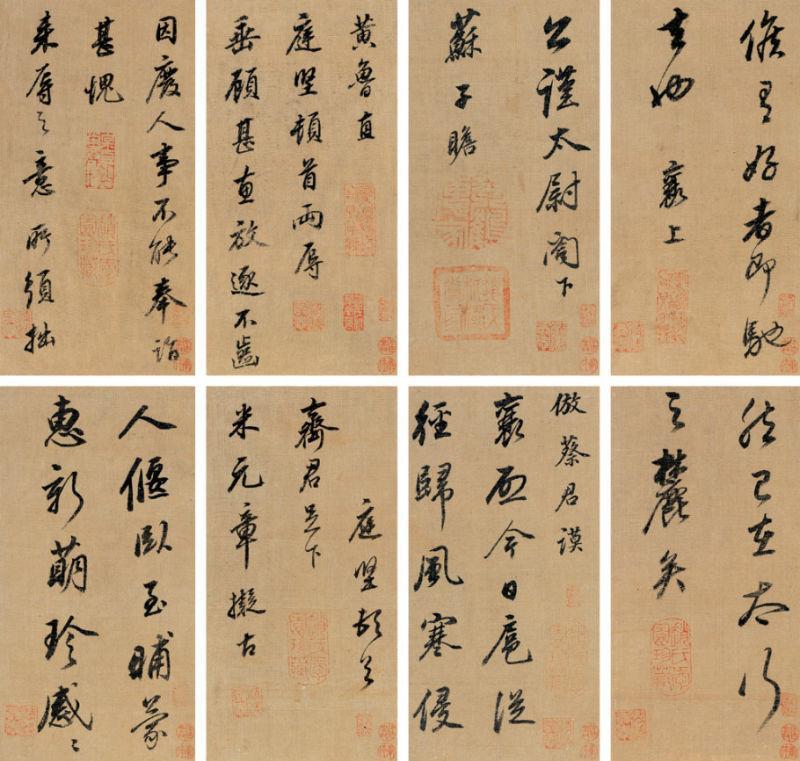 候有好者即馳
去也 襄上
公謹太尉閣下
蘇子瞻
黄魯直
庭堅頓首兩辱
垂顧甚惠放逐不齒
因廢人事不能奉詣
甚愧
來辱之意所須拙
然已在太行
之麓矣
倣蔡君謨
襄啟今日扈從
徑歸風寒侵
庭堅頓首
齊君足下
米元章擬古
人偃臥至晡蒙
惠新萌珍感〻